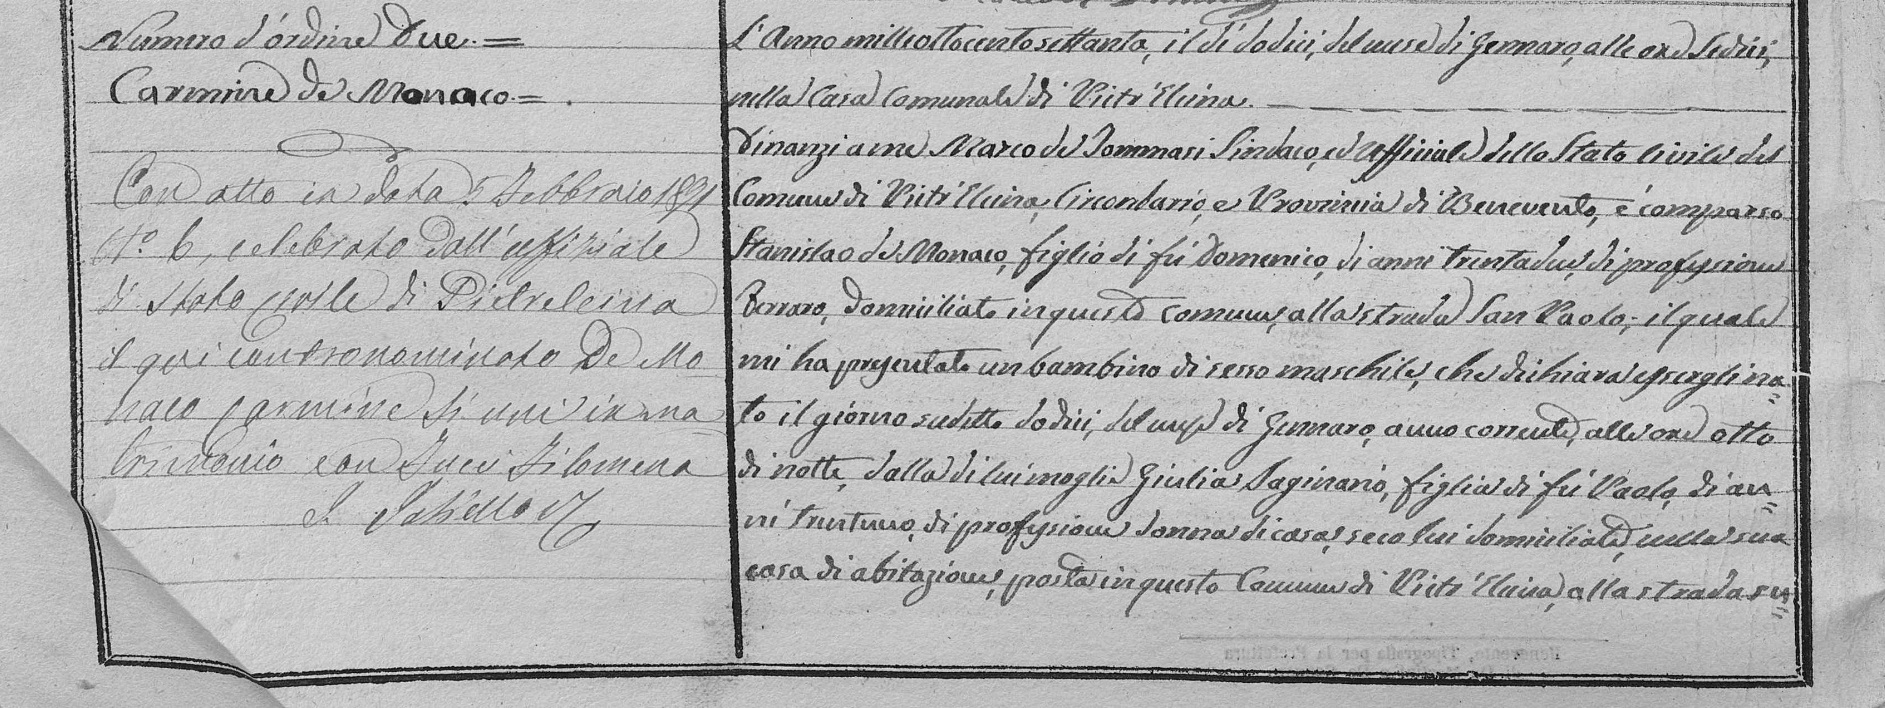 Numero d'órdine Due. =
Carmine de Monaco. = .
Con atto in data 5 Febbraio 1891
N.° 6, celebrato dall'uffiziale
di Stato civile di Pietrelcina
il qui contronominato De Mo
naco Carmine si unì in ma
trimonio con Fucci Filomena
L'Anno milleottocentosettanta, il dì dodici, del mese di Gennaro, alle ore sedici,
nella Casa Comunale di Pietr'Elcina.
Dinanzi a me Marco de Tommasi Sindaco, ed Uffiziale dello Stato Civile del
Comune di Pietr'Elcina, Circondario, e Provincia di Benevento, è comparso
Stanislao de Monaco, figlio di fù Domenico, di anni trentadue, di professione
Ferraro, domiciliato in questo comune, alla strada San Paolo; il quale
mi ha presentato un bambino di sesso maschile, che dichiara essergli na=
to il giorno sudetto dodici, del mese di Gennaro, anno corrente, alle ore otto
di notte, dalla di lui moglie Giulia Saginario, figlia di fù Paolo, di an=
ni trentuno, di professione donna di casa, seco lui domiciliata, nella sua
casa di abitazione, posta in questo Comune di Pietr'Elcina, alla strada su=
Benevento, Tipografia per la Prefettura